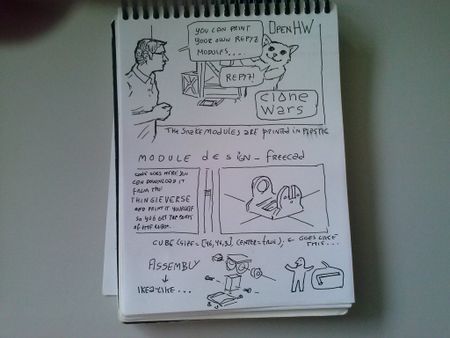 YOU CAN PRINT
YOUR OWN REPYZ
MODULES....
OPENHW
REPYZ!
clone
wars
THE SNAKE MODULES ARE PRINTED IN PLASTIC
MODULE dESIGN - freecad
CODE GOES HERE. YOU
CAN DOWNLOAD IT
FROM THE
THINGIEVERSE
AND PRINT IT YOURSELF
SO YOU GET THE PARTS
OF THE ROBOT.
CUBE (SIZE= CENTER=TRUE); ← GOES LIKE
THIS...
ASSEMBLY
↓
IKEA-LIKE...